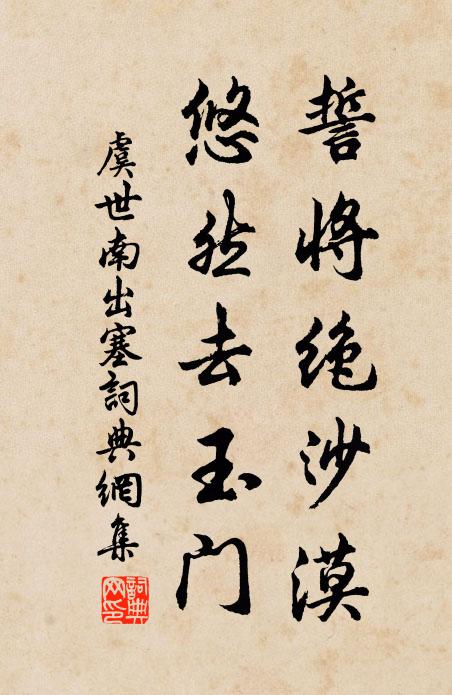 誓将绝沙漠
悠然去玉门
虞世南出塞詞典網集
詞典
网印